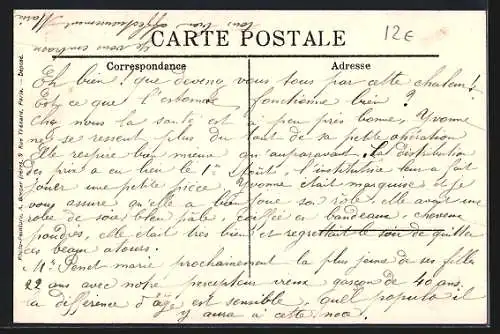 je vous embrasse
tous bien affectueusement Marie
12€
CARTE POSTALE
Correspondance Adresse
Eh bien! que devenez vous tous par cette chaleur!
Est-ce que l'estomac fonctionne bien?
Chez nous la santé est à peu près bonne, Yvonne
ne se ressent plus du tout de sa petite opération
Elle respire bien mieux qu'auparavant. La distribution
des prix a eu lieu le 1er Août, l'institutrice leur a fait
jouer une petite pièce, Yvonne était marquise et je
vous assure qu'elle a bien joué son rôle, elle avait une
robe de soie bleu pâle, coiffée en bandeaux, cheveux
poudrés, elle était très bien et regrettait le soir de quitter
ces beaux atours.
Mr Penet marie prochainement la plus jeune de ses filles
22 ans avec notre percepteur vieux garçon de 40 ans,
la différence d'âge est sensible, quel populo il
y aura à cette noce.